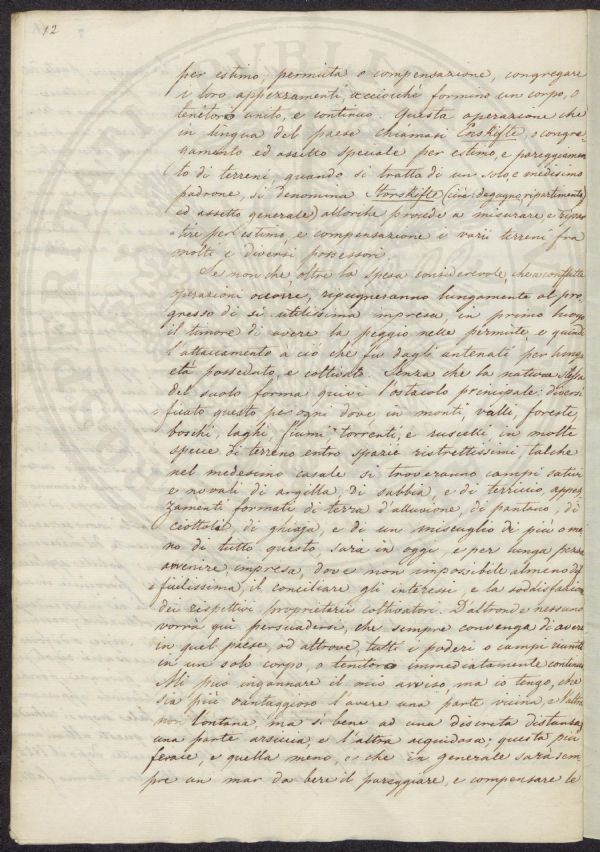 12
per estimo, permuta o compensazione, congregare
i loro appezzamenti, acciocchè formino un corpo, o
tenitoro unito, e continuo. Questa operazione che
in lingua del paese chiamasi Enskifte, o congre-
gamento ed assetto speciale per estimo, e pareggiamen-
to di terreni, quando si tratta di un solo, e medesimo
padrone, si denomina Storskifte (cioè degagno, ripartimento
ed assetto generale) allorchè procede a misurare e ripar-
tire per estimo, e compensazione i varii terreni fra
molti e diversi possessori.
Se non che oltre la spesa considerevole, che a consifatte
operazioni occorre, ripugneranno lungamente al pro-
gresso di sì utilissima impresa, in primo luogo
il timore di avere la peggio nelle permute, e quindi
l'attaccamento a ciò che fu dagli antenati per lunga
età posseduto, e coltivato. Senza che la natura stessa
del suolo forma quivi l'ostacolo principale: diversi-
ficato questo per ogni dove in monti, valli, foreste,
boschi, laghi, fiumi torrenti, e ruscelli, in molte
specie di terreno entro spazii ristrettissimi, talchè
nel medesimo casale si troveranno campi sativi
e novali di argilla, di sabbia, e di terriccio, appez-
zamenti formati di terra d'alluvione, di pantano, di
ciottoli, di ghiaja, e di un miscuglio di più o me-
no di tutto questo, sarà in oggi, e per lunga pezza
avvenire impresa, dove non impossibile almeno dif-
ficilissima, il conciliare gli interessi, e la soddisfazione
dei rispettivi proprietarii coltivatori. D'altronde nessuno
vorrà qui persuadersi, che sempre convenga di avere
in quel paese, od altrove, tutti i poderi o campi riuniti
in un solo corpo, o tenitoro immediatamente continuo
Mi può ingannare il mio avviso ma io tengo, che
sia più vantaggioso l'avere una parte vicina, e l'altra
non lontana, ma si bene ad una discreta distanza,
una parte arsiccia, e l'altra acquidosa; questa più
ferace, e quella meno, e che in generale sarà sem-
pre un mar da bere il pareggiare, e compensare le